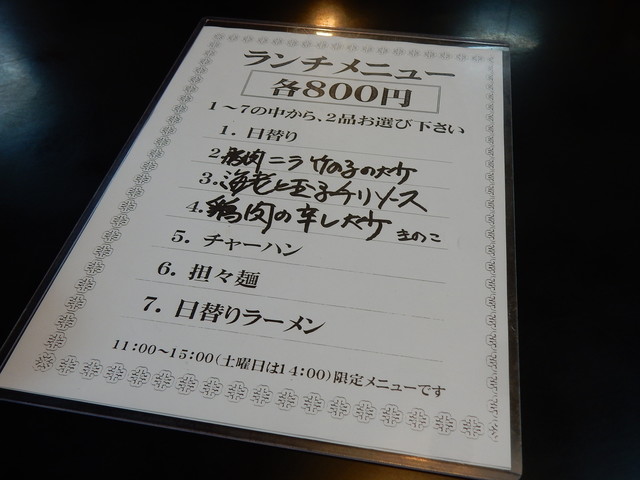 ランチメニュー
各800円
1～7の中から、2品お選び下さい
1. 日替り
2. 肉ニラ竹の子の炒
3. 海老と玉子チリソース
4. 鶏肉の辛し炒 きのこ
5. チャーハン
6. 担々麺
7. 日替りラーメン
11:00～15:00(土曜日は14:00)限定メニューです